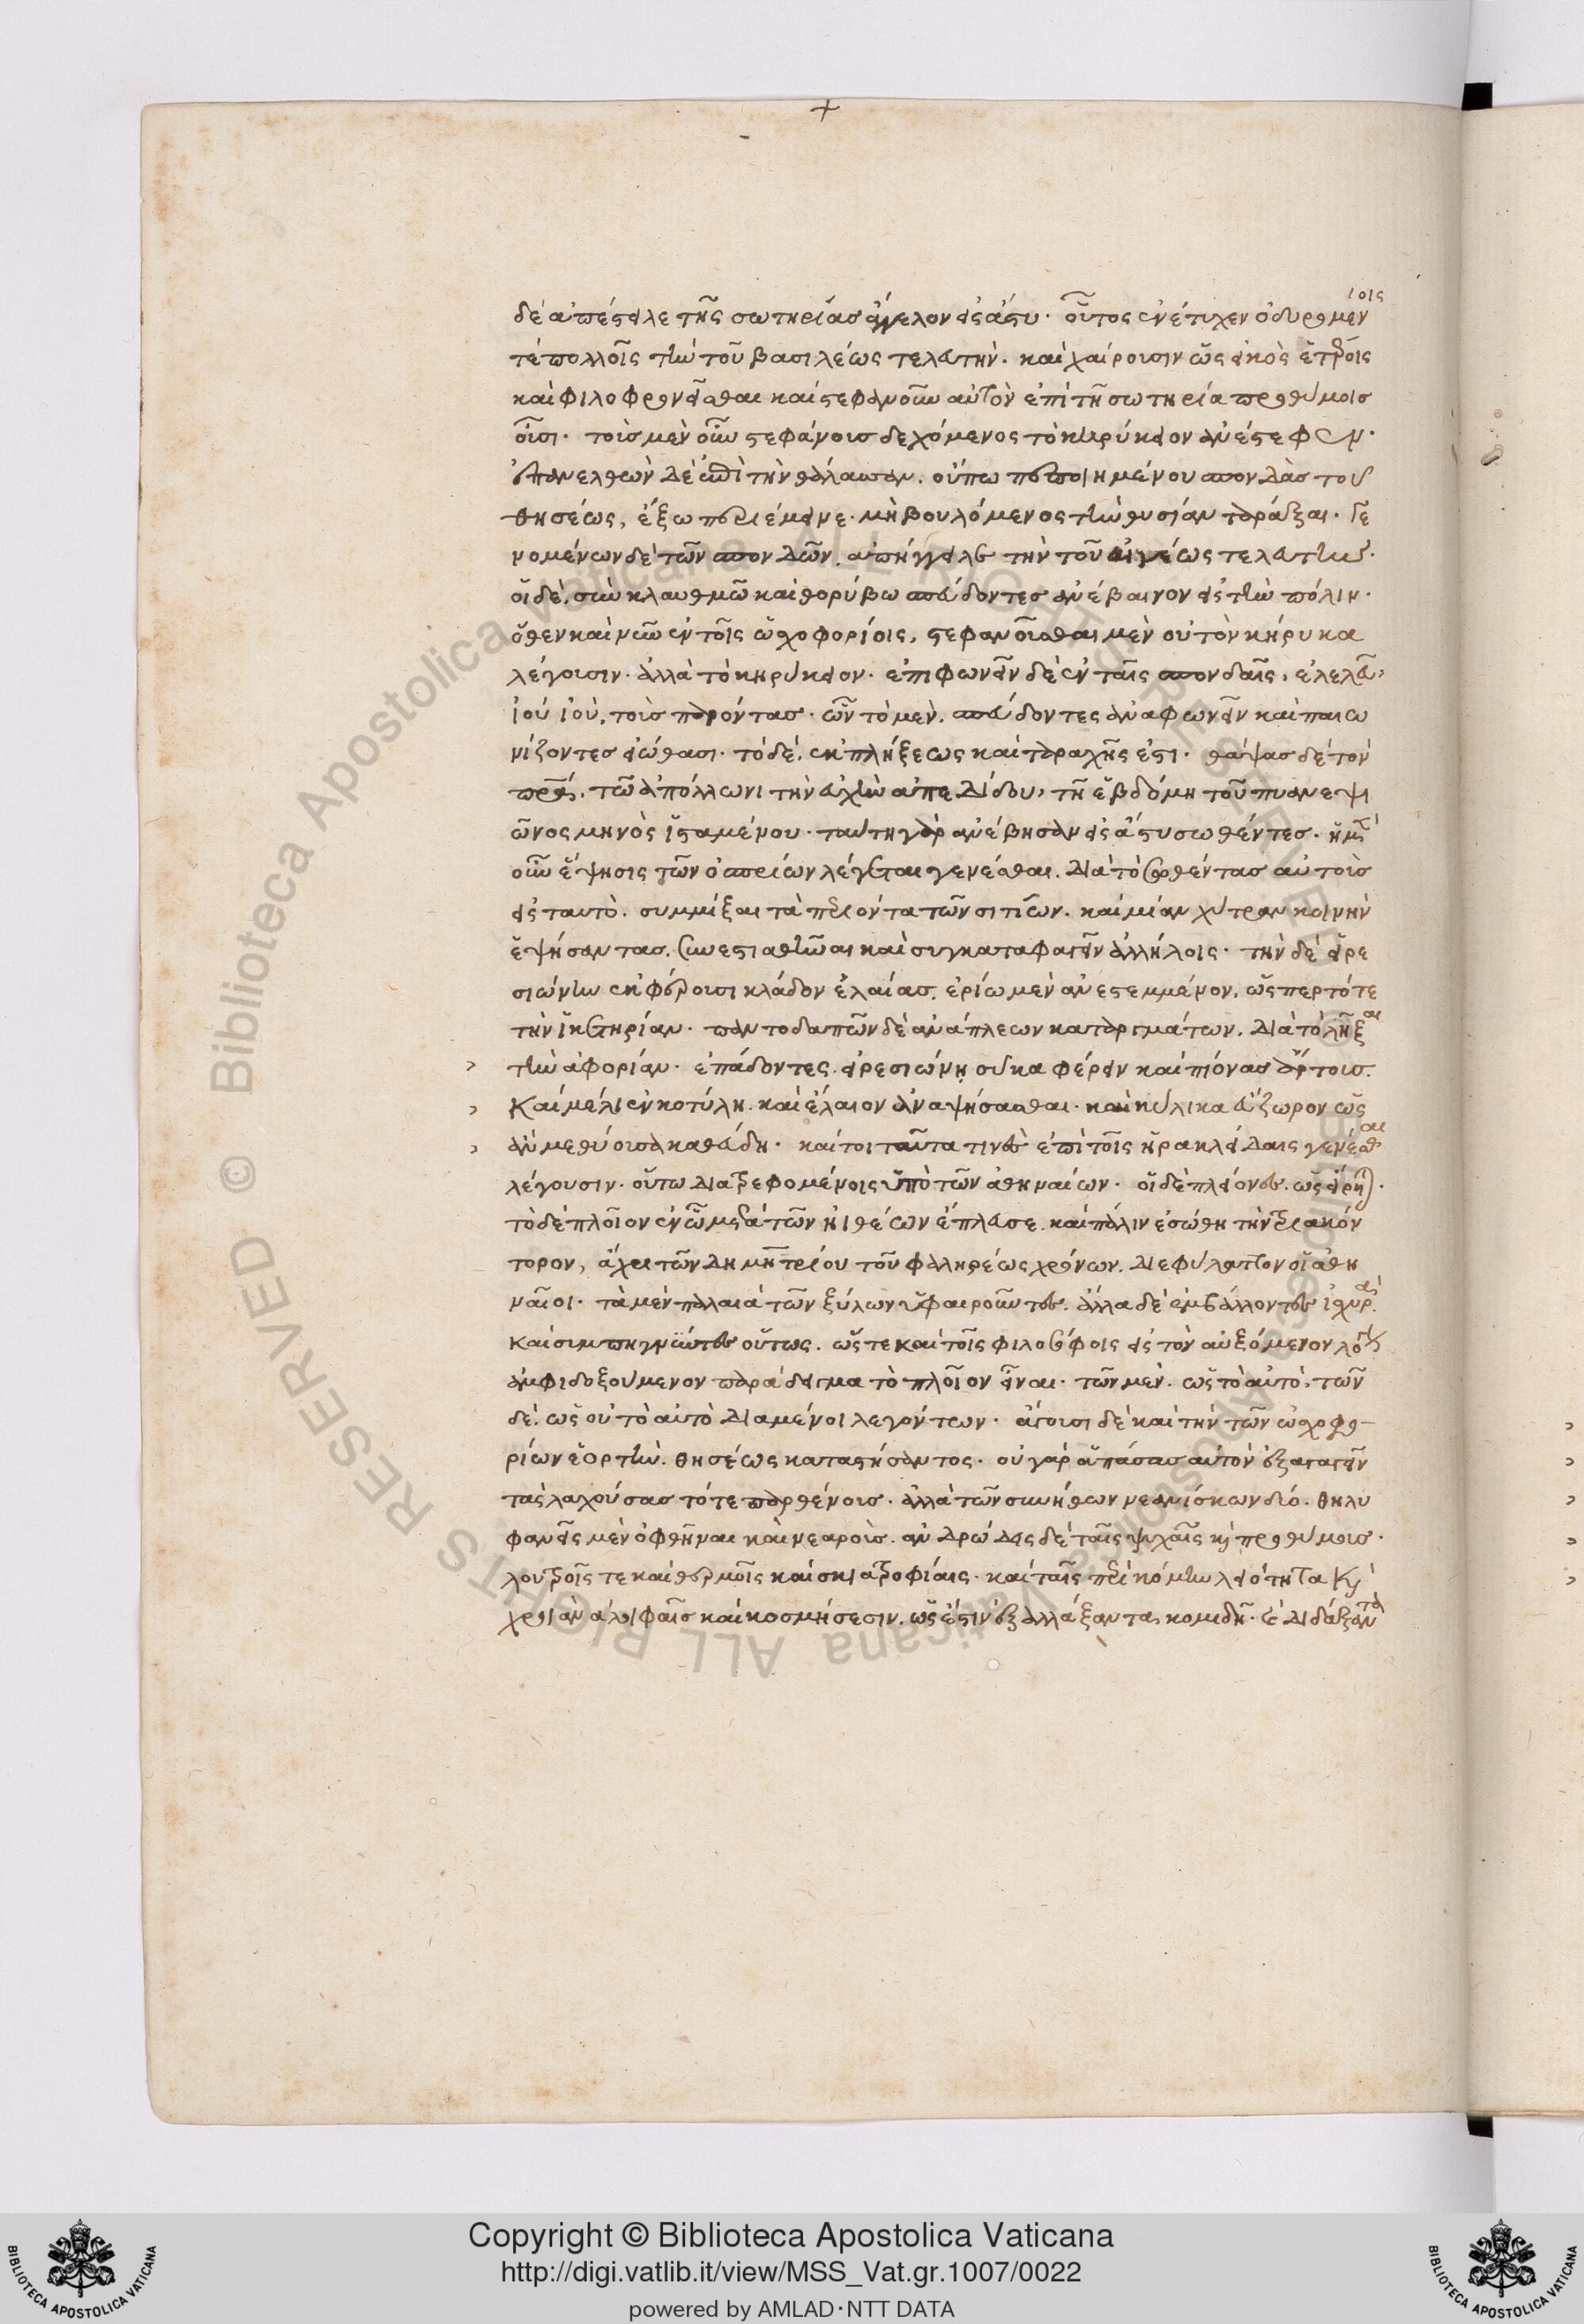 δὲ ἀπέστειλε τῆς σωτηρίας ἄγγελον εἰς ἄστυ· οὗτος ἐνέτυχεν ὀδυρομένοις
τὲ πολλοῖς τὴν τοῦ βασιλέως τελευτὴν· καὶ χαίρουσιν ὡς εἰκὸς ἑτέροις
καὶ φιλοφρονεῖσθαι καὶ στεφανοῦν αὐτὸν ἐπὶ τῆ σωτηρία προθύμοις
οὖσι· τοὺς μὲν οὖν στεφάνους δεχόμενος τὸ κηρύκειον ἀνέστεφεν·
ἐπανελθὼν δὲ ἐπὶ τὴν θάλασσαν. οὔπω πεποιημένου σπονδὰς τοῦ
θησέως, ἔξω περιέμεινε· μὴ βουλόμενος τὴν θυσίαν ταράξαι· γε
νομένων δὲ τῶν σπονδῶν. ἀπήγγειλε τὴν τοῦ αἰγέως τελευτὴν·
οἱ δὲ. σὺν κλαυθμῶ καὶ θορύβω σπεύδοντες ἀνέβαινον εἰς τὴν πόλιν·
ὅθεν καὶ νῦν ἐν τοῖς ὠσχοφορίοις, στεφανοῦσθαι μὲν οὐ τὸν κήρυκα
λέγουσιν· ἀλλὰ τὸ κηρύκειον· ἐπιφωνεῖν δὲ ἐν ταῖς σπονδαῖς, ἐλελεῦ,
ἰοὺ ἰοὺ, τοὺς παρόντας· ὧν τὸ μὲν. σπεύδοντες ἀναφωνεῖν καὶ παιω
νίζοντες εἰώθασι· τὸ δὲ. ἐκπλήξεως καὶ ταραχῆς ἐστι· θάψας δὲ τὸν
πατέρα. τῶ ἀπόλλωνι τὴν εὐχὴν ἀπεδίδου, τῆ ἑβδόμη τοῦ πυανεψι
ῶνος μηνὸς ἱσταμένου· ταύτη γὰρ ἀνέβησαν εἰς ἄστυ σωθέντες· ἡ μὲν
οὖν ἕψησις τῶν ὀσπρίων λέγεται γενέσθαι. διὰ τὸ σωθέντας αὐτοὺς
εἰς ταυτὸ. συμμίξαι τὰ περιόντα τῶν σιτίων. καὶ μίαν χύτραν κοινὴν
ἑψήσαντας. συνεστιαθῆναι καὶ συγκαταφαγεῖν ἀλλήλοις· τὴν δὲ εἰρε
σιώνην ἐκφέρουσι κλάδον ἐλαίας. ἐρίω μὲν ἀνεστεμμένον. ὥσπερ τότε
τὴν ἱκετηρίαν· παντοδαπῶν δὲ ἀνάπλεων καταργμάτων. διὰ τὸ λῆξαι
τὴν ἀφορίαν· ἐπάδοντες. εἰρεσιώνη σῦκα φέρειν καὶ πίονας ἄρτους.
καὶ μέλι ἐν κοτύλη. καὶ ἔλαιον ἀναψήσασθαι· καὶ κύλικα εὔζωρον ὡς
ἂν μεθύουσα καθεύδη· καίτοι ταῦτα τινὲς ἐπὶ τοῖς ἡρακλείδαις γενέσθαι
λέγουσιν· οὕτω διατρεφομένοις ὑπὸ τῶν ἀθηναίων· οἱ δὲ πλείονες. ὡς εἴρηται·
τὸ δὲ πλοῖον ἐν ὧ μετὰ τῶν ἠιθέων ἔπλευσε. καὶ πάλιν ἐσώθη τὴν τριακόν
τορον, ἄχρι τῶν δημητρίου τοῦ φαληρέως χρόνων. διεφύλαττον οἱ ἀθη
ναῖοι· τὰ μὲν παλαιὰ τῶν ξύλων ὑφαιροῦντες. ἄλλα δὲ ἐμβάλλοντες ἰσχυρὰ.
καὶ συμπηγνύντες οὕτως. ὥστε καὶ τοῖς φιλοσόφοις εἰς τὸν αὐξόμενον λόγον
ἀμφιδοξούμενον παράδειγμα τὸ πλοῖον εἶναι· τῶν μὲν. ὡς τὸ αὐτὸ. τῶν
δὲ. ὡς οὐ τὸ αὐτὸ διαμένοι λεγόντων· ἄγουσι δὲ καὶ τὴν τῶν ὠσχοφο-
ρίων ἑορτὴν. θησέως καταστήσαντος· οὐ γὰρ ἁπάσας αὐτὸν ἐξαγαγεῖν
τὰς λαχούσας τότε παρθένους. ἀλλὰ τῶν συνήθων νεανίσκων δύο. θηλυ
φανεῖς μὲν ὀφθῆναι καὶ νεαροὺς. ἀνδρώδεις δὲ ταῖς ψυχαῖς καὶ προθύμους·
λουτροῖς τε καὶ θερμοῖς καὶ σκιατροφίαις· καὶ ταῖς περὶ κόμην λειότητα καὶ
χροιὰν ἀλοιφαῖς καὶ κοσμήσεσιν. ὡς ἔστιν ἐξαλλάξαντα κομιδῆ· ἐδίδαξαντα